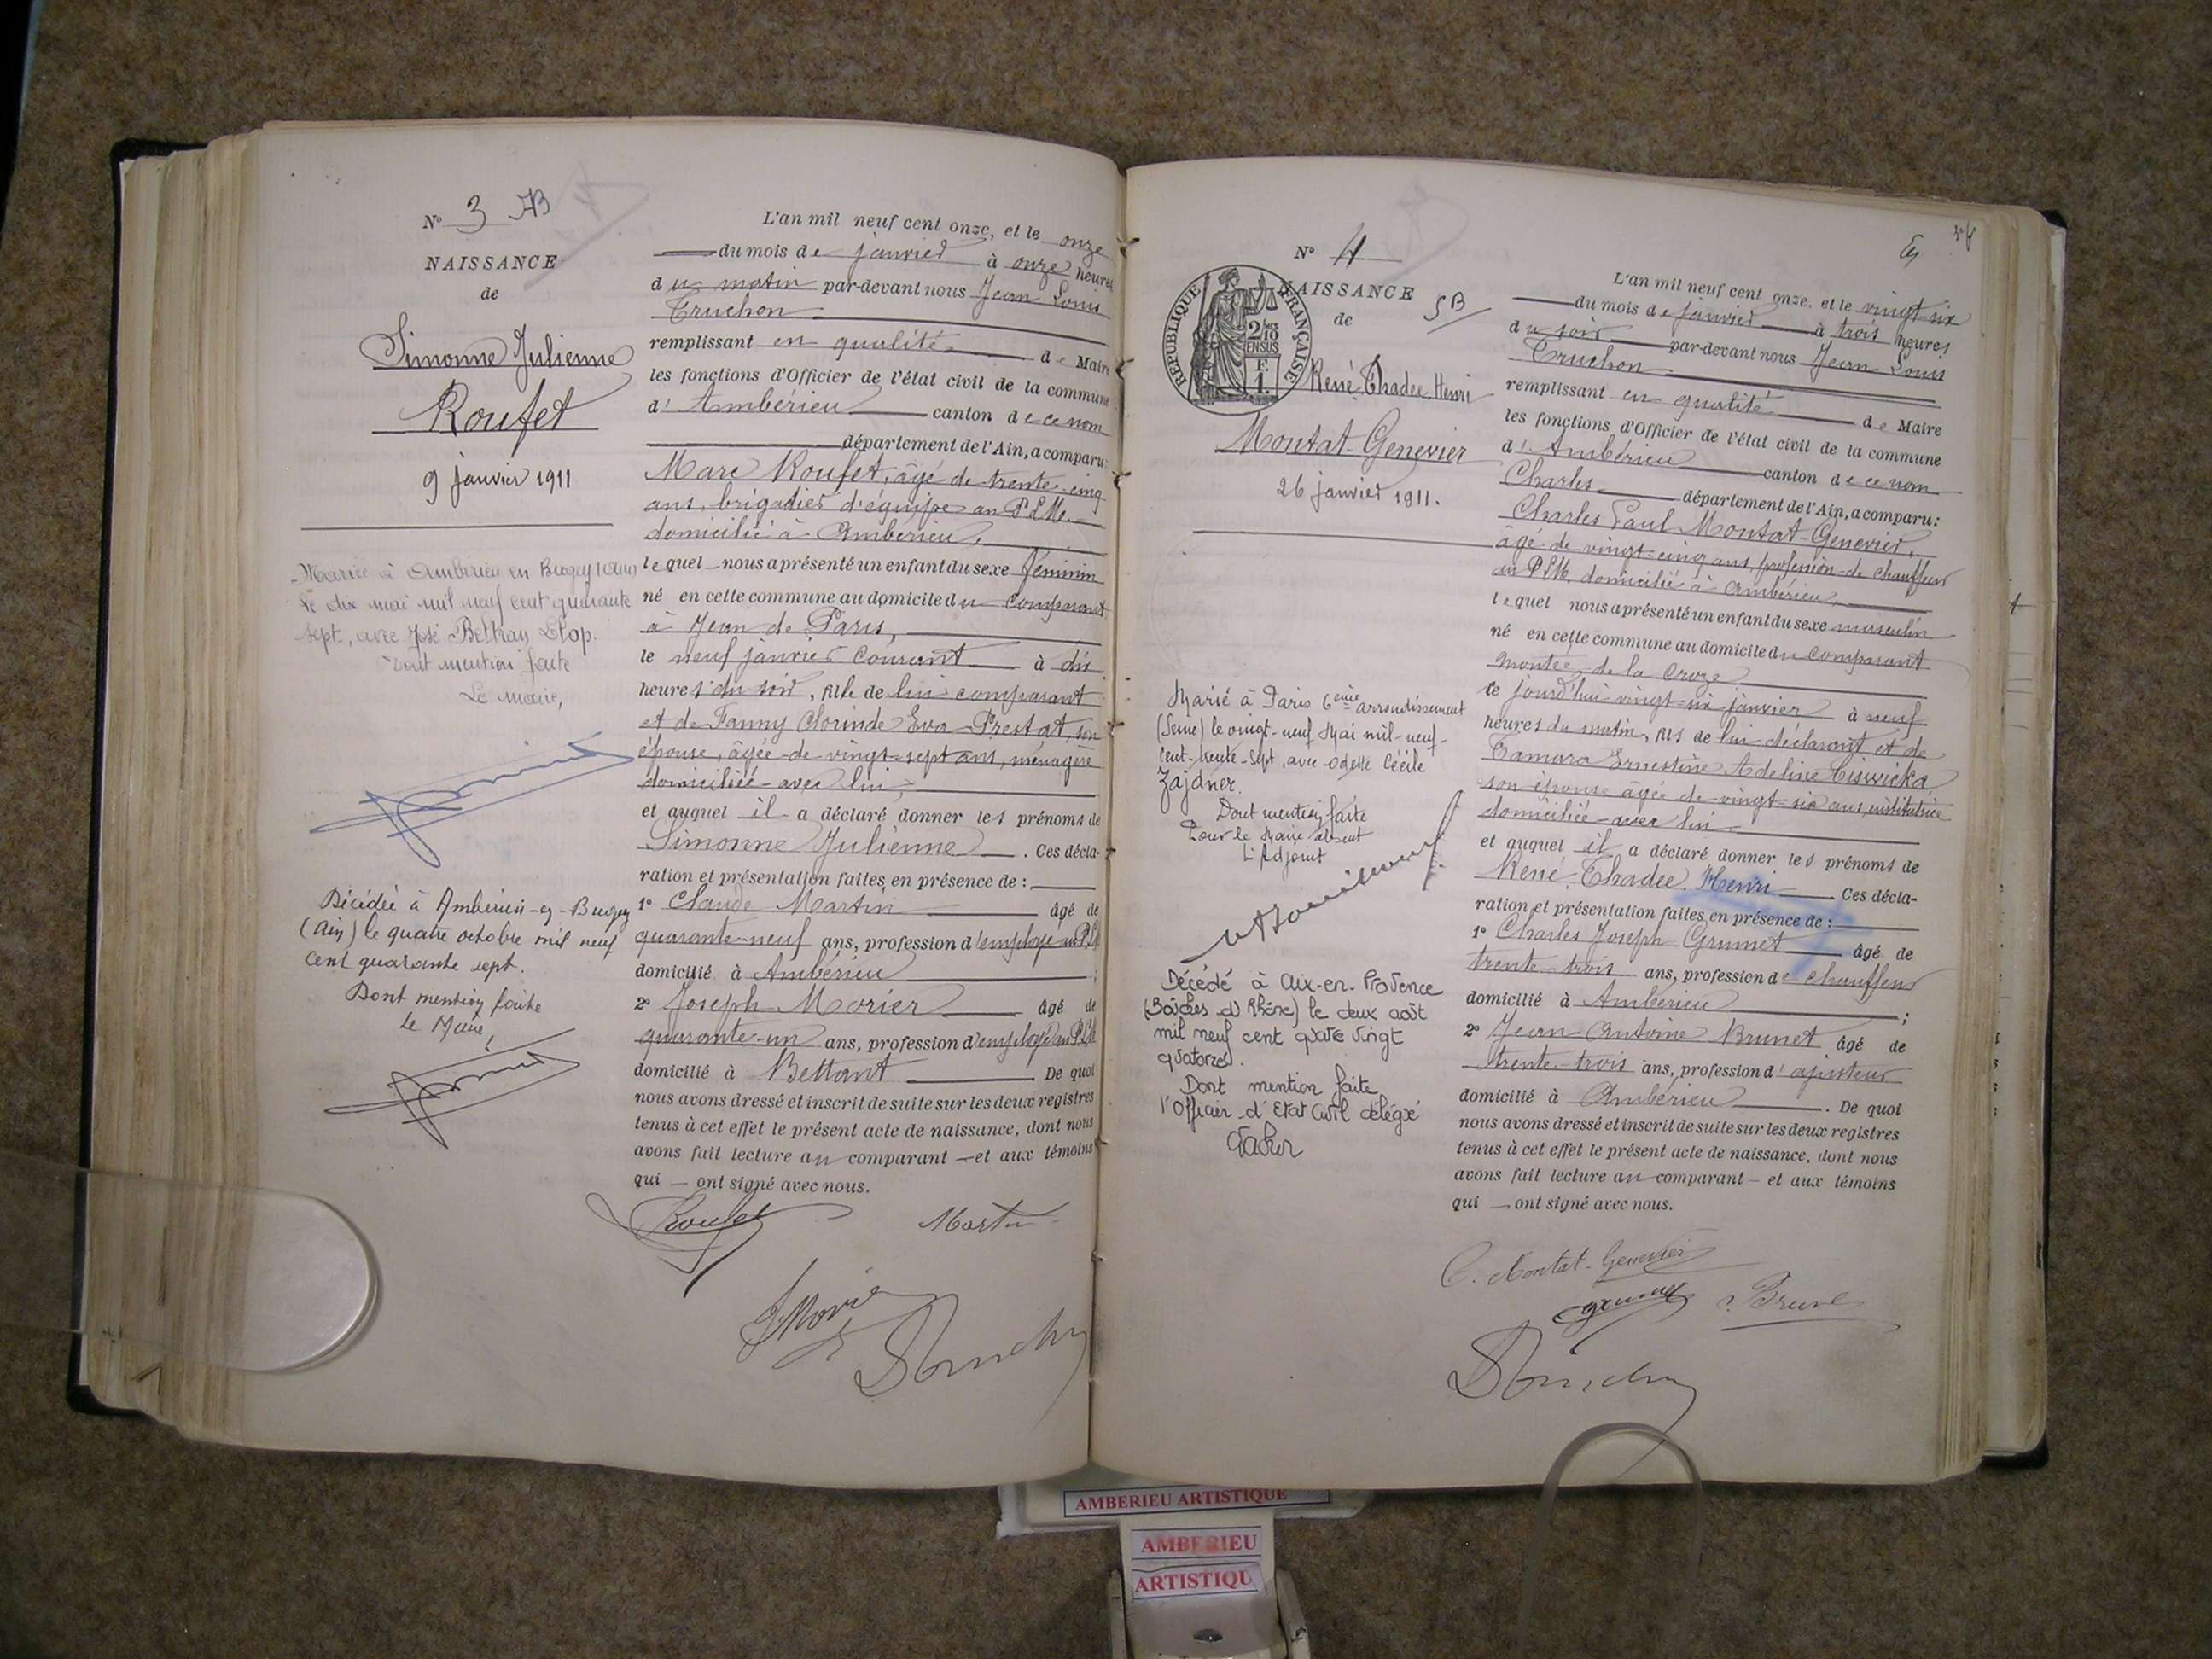 N° 3 AB
NAISSANCE
de
Simonne Julienne
Roufet
9 janvier 1911
Mariée à Ambérieu en Bugey (Ain)
Le dix mai mil neuf cent quarante
sept, avec José Beltran
Dont mention faite
Le maire,
Décédée à Ambérieu-en-Bugey
(Ain) le quatre octobre mil neuf
cent quarante sept.
Dont mention faite
Le Maire,
L'an mil neuf cent onze, et le onze
du mois de janvier à onze heures
du matin par-devant nous Jean Louis
Truchon
remplissant en qualité de Maire
les fonctions d'Officier de l'état civil de la commune
d'Ambérieu canton de ce nom
département de l'Ain, a comparu:
Marc Roufet, âgé de trente-cinq
ans, brigadier d'équipe au P.L.M.
domicilié à Ambérieu,
lequel nous a présenté un enfant du sexe féminin
né en cette commune au domicile du comparant
à Jean de Paris,
le neuf janvier courant à dix
heures du soir, fille de lui comparant
et de Fanny Clorinde Eva Prestat, son
épouse, âgée de vingt-sept ans, ménagère
domiciliée avec lui,
et auquel il a déclaré donner les prénoms de
Simonne Julienne. Ces décla-
ration et présentation faites en présence de :
1° Claude Martin âgé de
quarante-neuf ans, profession d'employé au P.L.M
domicilié à Ambérieu ;
2° Joseph Morier âgé de
quarante-un ans, profession d'employé au P.L.M
domicilié à Bettant. De quoi
nous avons dressé et inscrit de suite sur les deux registres
tenus à cet effet le présent acte de naissance, dont nous
avons fait lecture au comparant et aux témoins
qui ont signé avec nous.
Roufet Martin
N° 4
NAISSANCE
de
5B
RÉPUBLIQUE FRANÇAISE
2/10 EN SUS
F.
1
René Thadée Henri
Montat-Genevier
26 janvier 1911.
Marié à Paris 6ème arrondissement
(Seine) le vingt-neuf Mai mil-neuf-
cent-trente-sept, avec Odette Cécile
Zajdner.
Dont mention faite
Pour le Maire absent
L'Adjoint
Décédé à Aix-en-Provence
(Bouches du Rhône) le deux août
mil neuf cent quatre vingt
quatorze.
Dont mention faite
l'Officier d'Etat Civil délégué
L'an mil neuf cent onze, et le vingt-six
du mois de janvier à trois heures
du soir par-devant nous Jean Louis
Truchon
remplissant en qualité de Maire
les fonctions d'Officier de l'état civil de la commune
d'Ambérieu canton de ce nom
Charles département de l'Ain, a comparu:
Charles Paul Montat-Genevier,
âgé de vingt-cinq ans, profession de chauffeur
au P.L.M. domicilié à Ambérieu,
lequel nous a présenté un enfant du sexe masculin
né en cette commune au domicile du comparant
montée de la Croze
le jourd'hui vingt-six janvier à neuf
heures du matin, fils de lui déclarant et de
Tamara Ernestine Adeline
son épouse âgée de vingt-six ans, institutrice
domiciliée avec lui
et auquel il a déclaré donner les prénoms de
René, Thadée, Henri Ces décla-
ration et présentation faites en présence de :
1° Charles Joseph Grumet âgé de
trente-trois ans, profession de chauffeur
domicilié à Ambérieu ;
2° Jean Antoine Brunet âgé de
trente-trois ans, profession d'ajusteur
domicilié à Ambérieu. De quoi
nous avons dressé et inscrit de suite sur les deux registres
tenus à cet effet le présent acte de naissance, dont nous
avons fait lecture au comparant et aux témoins
qui ont signé avec nous.
C. Montat-Genevier
AMBERIEU ARTISTIQUE
AMBERIEU
ARTISTIQU